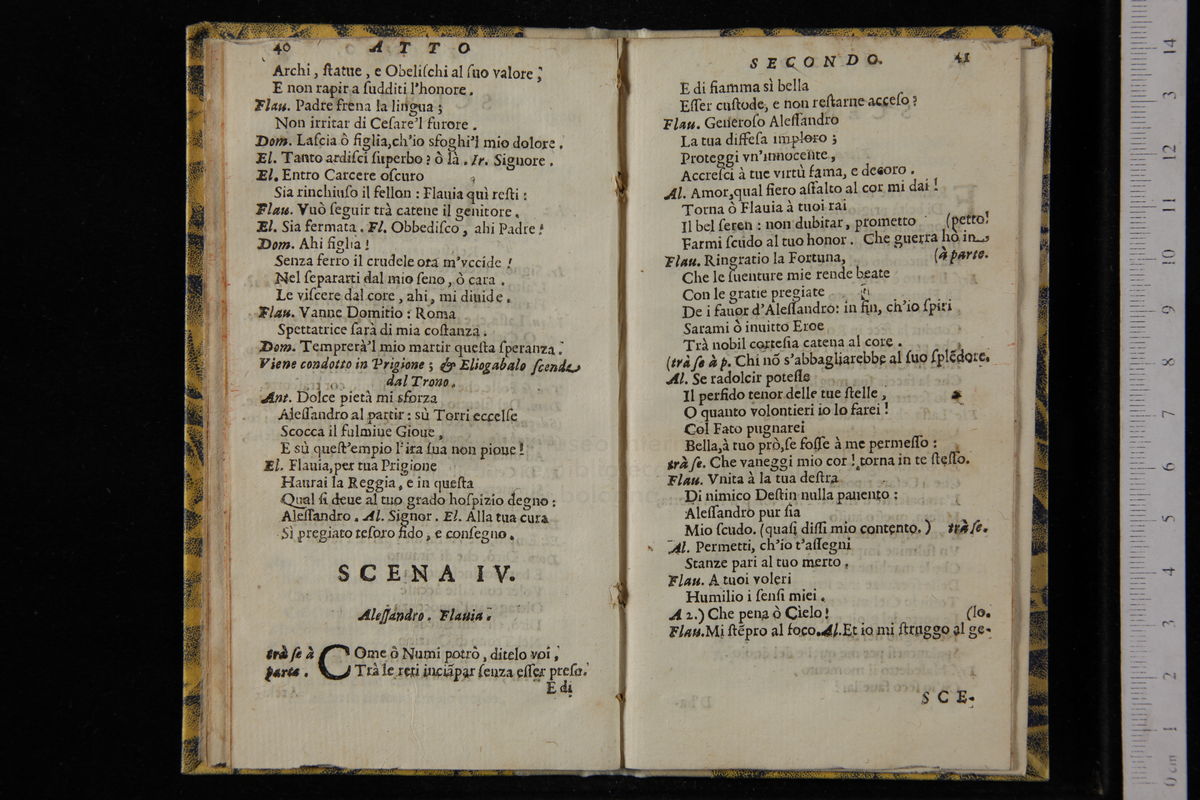 40 ATTO
Archi, ſtatue, e Obeliſchi al ſuo valore,
E non rapir a ſudditi l'honore.
Flau. Padre frena la lingua;
Non irritar di Ceſare'l furore.
Dom. Laſcia ò figlia, ch'io sfoghi'l mio dolore.
El. Tanto ardiſci ſuperbo? ò là. Ir. Signore.
El. Entro Carcere oſcuro
Sia rinchiuſo il fellon: Flauia quì reſti:
Flau. Vuò ſeguir trà catene il genitore.
El. Sia fermata. Fl. Obbediſco, ahi Padre!
Dom. Ahi figlia!
Senza ferro il crudele ora m'vccide!
Nel ſepararti dal mio ſeno, ò cara.
Le viſcere dal core, ahi, mi diuide.
Flau. Vanne Domitio: Roma
Spettatrice ſarà di mia coſtanza.
Dom. Temprerà'l mio martir queſta ſperanza.
Viene condotto in Prigione; & Eliogabalo ſcende
dal Trono.
Ant. Dolce pietà mi sforza
Aleſſandro al partir: sù Torri eccelſe
Scocca il fulmine Gioue,
E sù queſt'empio l'ira ſua non pioue!
El. Flauia, per tua Prigione
Haurai la Reggia, e in queſta
Qual ſi deue al tuo grado hoſpizio degno:
Aleſſandro. Al. Signor. El. Alla tua cura
Sì pregiato teſoro fido, e conſegno.
SCENA IV.
Aleſſandro. Flauia.
trà ſe à parte. COme ò Numi potrò, ditelo voi,
Trà le reti inciãpar ſenza eſſer preſo.
E di
SECONDO. 41
E di fiamma sì bella
Eſſer cuſtode, e non reſtarne acceſo?
Flau. Generoſo Aleſſandro
La tua diffeſa imploro;
Proteggi vn'innocente,
Accreſci à tue virtù fama, e decoro.
Al. Amor, qual fiero aſſalto al cor mi dai!
Torna ò Flauia à tuoi rai
Il bel ſeren: non dubitar, prometto (petto!
Farmi ſcudo al tuo honor. Che guerra hò in
Flau. Ringratio la Fortuna, (à parte.
Che le ſuenture mie rende beate
Con le gratie pregiate
De i fauor d'Aleſſandro: in fin, ch'io ſpiri
Sarami ò inuitto Eroe
Trà nobil corteſia catena al core.
(trà ſe à p. Chi nõ s'abbagliarebbe al ſuo ſplẽdore.
Al. Se radolcir poteſſe
Il perfido tenor delle tue ſtelle,
O quanto volontieri io lo farei!
Col Fato pugnarei
Bella, à tuo prò, ſe foſſe à me permeſſo:
trà ſe. Che vaneggi mio cor! torna in te ſteſſo.
Flau. Vnita à la tua deſtra
Di nimico Deſtin nulla pauento:
Aleſſandro pur ſia
Mio ſcudo. (quaſi diſſi mio contento.) trà ſe.
Al. Permetti, ch'io t'aſſegni
Stanze pari al tuo merto.
Flau. A tuoi voleri
Humilio i ſenſi miei.
A 2.) Che pena ò Cielo! (lo.
Flau. Mi ſtẽpro al foco. Al. Et io mi ſtruggo al ge-
SCE-